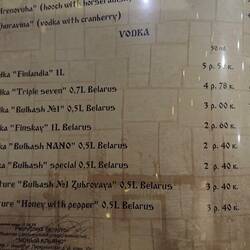 "Hrenovuha" (hooch with horseradish)
"Zhuravina" (vodka with cranberry)
VODKA
50 ml
"Finlandia" 1L
"Triple seven" 0,7L Belarus 4 p. 78 к.
"Bulbash №1" 0,5L Belarus 3 p. 00 к.
"Finskay" 1L Belarus 2 p. 60 к.
"Bulbash NANO" 0,5L Belarus 2 p. 40 к.
"Bulbash" special 0,5L Belarus 2 p. 40 к.
"Bulbash №1 Zubrovaya" 0,5L Belarus 3 p. 40 к.
"Honey with pepper" 0,5L Belarus 3 p. 40 к.
Республика Беларусь